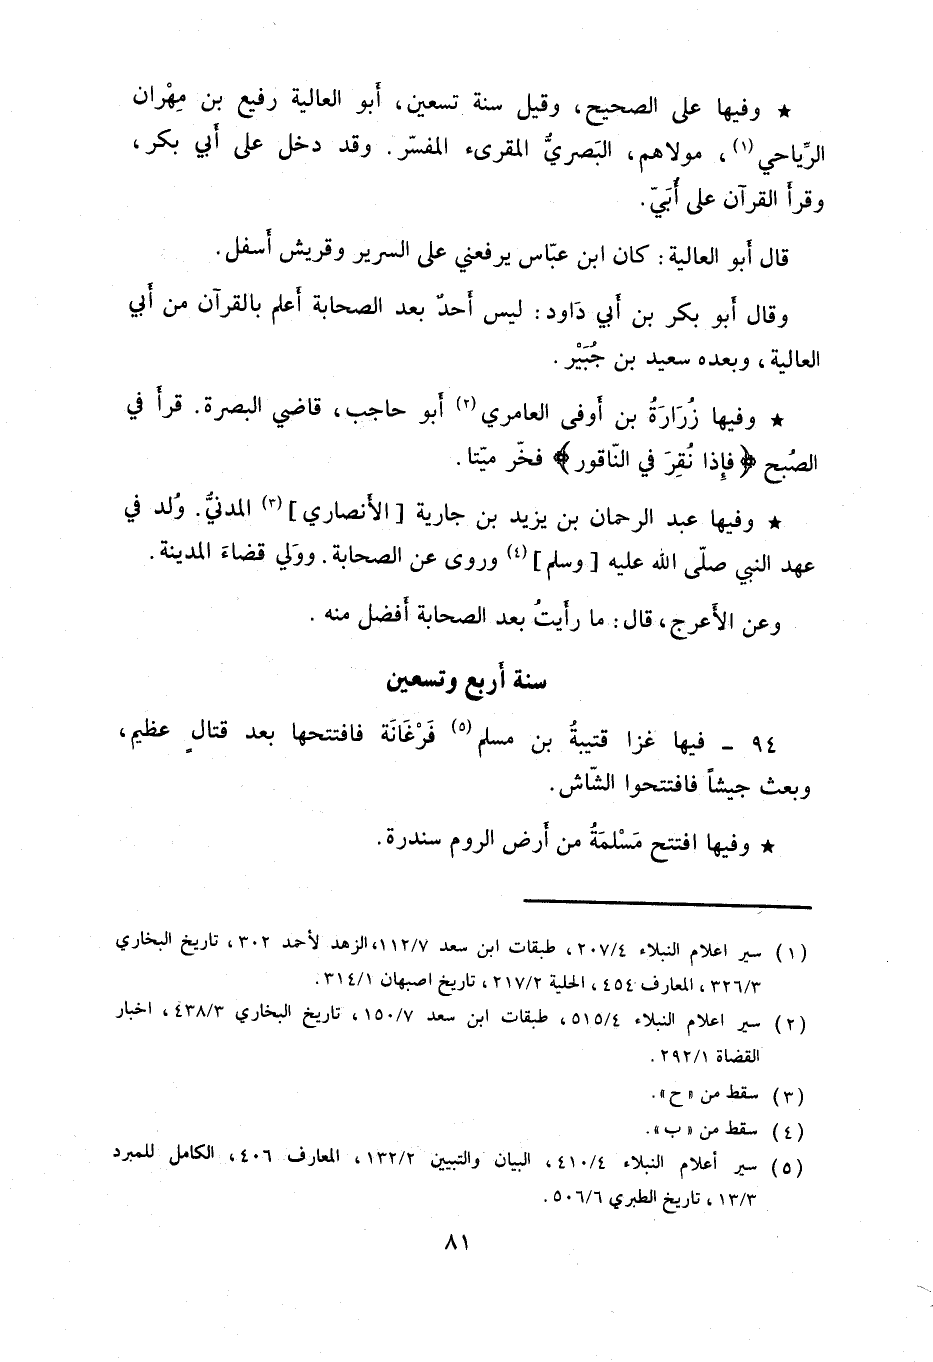 ★ وفيها على الصحيح، وقيل سنة تسعين، أَبو العالية رفيع بن مِهْران
الرِّياحي(١)، مولاهم، البَصريُّ المقرىء المفسّر. وقد دخل على أَبي بكر،
وقرأَ القرآن على أُبَيّ.
قال أَبو العالية: كان ابن عبّاس يرفعني على السرير وقريش أَسفل.
وقال أَبو بكر بن أَبي دَاود: ليس أَحدٌ بعد الصحابة أَعلم بالقرآن من أَبي
العالية، وبعده سعيد بن جُبَيْر.
★ وفيها زُرَارَةُ بن أَوفى العامري(٢) أَبو حاجب، قاضي البصرة. قرأَ في
الصُبح ﴿فإِذا نُقِرَ في النّاقور﴾ فخّر ميّتا.
★ وفيها عبد الرحمان بن يزيد بن جارية [الأَنصاري](٣) المدنيُّ. وُلد في
عهد النبي صلّى الله عليه [وسلم](٤) وروى عن الصحابة. ووَلي قضاءَ المدينة.
وعن الأَعرج، قال: ما رأَيتُ بعد الصحابة أَفضل منه.
سنة أَربع وتسعين
٩٤ - فيها غزا قتيبةُ بن مسلم(٥) فَرْغَانَة فافتتحها بعد قتالٍ عظيم،
وبعث جيشاً فافتتحوا الشّاش.
★ وفيها افتتح مَسْلمَةُ من أَرض الروم سندرة.
(١) سير اعلام النبلاء ٢٠٧/٤، طبقات ابن سعد ١١٢/٧، الزهد لأحمد ٣٠٢، تاريخ البخاري
٣٢٦/٣، المعارف ٤٥٤، الحلية ٢١٧/٢، تاريخ اصبهان ٣١٤/١.
(٢) سير اعلام النبلاء ٥١٥/٤، طبقات ابن سعد ١٥٠/٧، تاريخ البخاري ٤٣٨/٣، اخبار
القضاة ٢٩٢/١.
(٣) سقط من «ح».
(٤) سقط من «ب».
(٥) سير أعلام النبلاء ٤١٠/٤، البيان والتبيين ١٣٢/٢، المعارف ٤٠٦، الكامل للمبرد
١٣/٣، تاريخ الطبري ٥٠٦/٦.
٨١